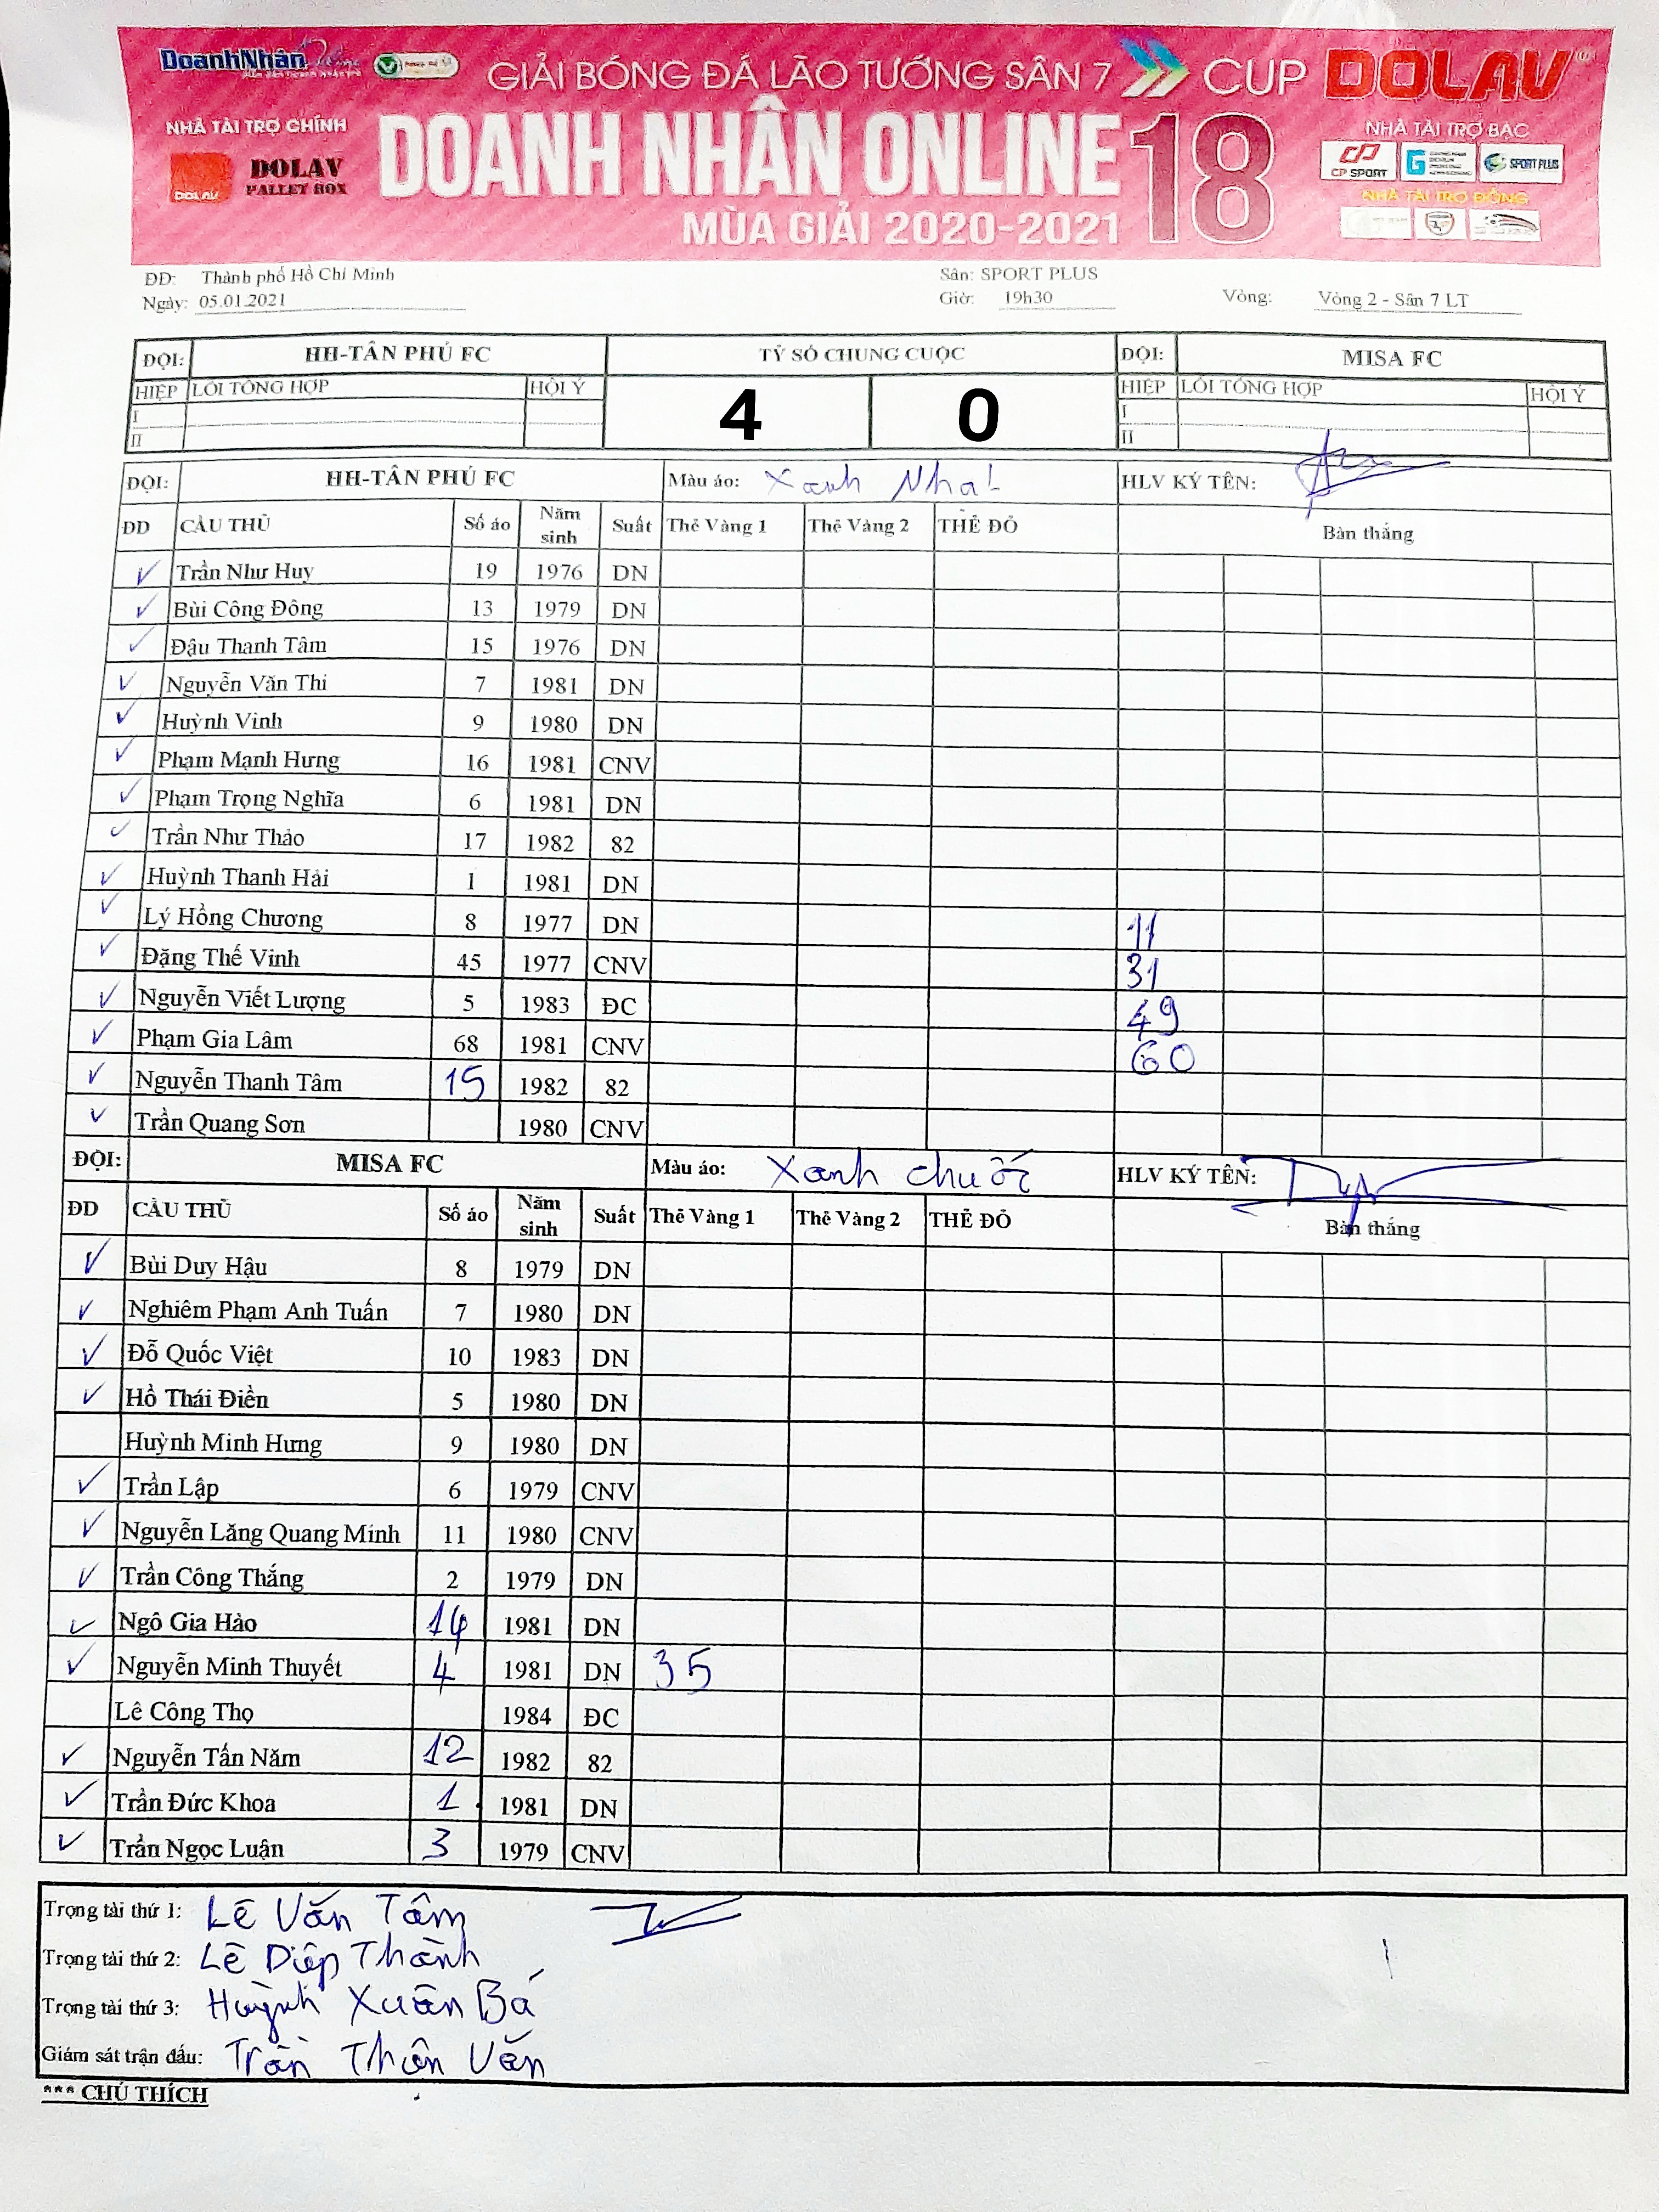 DoanhNhân
GIẢI BÓNG ĐÁ LÃO TƯỚNG SÂN 7 CUP DOLAV
NHÀ TÀI TRỢ CHÍNH
DOLAV
DOLAV PALLET BOX
DOANH NHÂN ONLINE 18
MÙA GIẢI 2020-2021
NHÀ TÀI TRỢ BẠC
CP SPORT
SPORT PLUS
NHÀ TÀI TRỢ ĐỒNG
ĐD: Thành phố Hồ Chí Minh Sân: SPORT PLUS
Ngày: 05.01.2021 Giờ: 19h30 Vòng: Vòng 2 - Sân 7 LT
ĐỘI: HH-TÂN PHÚ FC TỶ SỐ CHUNG CUỘC ĐỘI: MISA FC
HIỆP LỖI TỔNG HỢP HỘI Ý 4 0 HIỆP LỖI TỔNG HỢP HỘI Ý
I I
II II
ĐỘI: HH-TÂN PHÚ FC Màu áo: Xanh Nhạt HLV KÝ TÊN:
ĐD CẦU THỦ Số áo Năm sinh Suất Thẻ Vàng 1 Thẻ Vàng 2 THẺ ĐỎ Bàn thắng
Trần Như Huy 19 1976 DN
Bùi Công Đông 13 1979 DN
Đậu Thanh Tâm 15 1976 DN
Nguyễn Văn Thi 7 1981 DN
Huỳnh Vinh 9 1980 DN
Phạm Mạnh Hưng 16 1981 CNV
Phạm Trọng Nghĩa 6 1981 DN
Trần Như Thảo 17 1982 82
Huỳnh Thanh Hải 1 1981 DN
Lý Hồng Chương 8 1977 DN 11
Đặng Thế Vinh 45 1977 CNV 31
Nguyễn Viết Lượng 5 1983 ĐC 49
Phạm Gia Lâm 68 1981 CNV 60
Nguyễn Thanh Tâm 15 1982 82
Trần Quang Sơn 1980 CNV
ĐỘI: MISA FC Màu áo: Xanh chuối HLV KÝ TÊN:
ĐD CẦU THỦ Số áo Năm sinh Suất Thẻ Vàng 1 Thẻ Vàng 2 THẺ ĐỎ Bàn thắng
Bùi Duy Hậu 8 1979 DN
Nghiêm Phạm Anh Tuấn 7 1980 DN
Đỗ Quốc Việt 10 1983 DN
Hồ Thái Điền 5 1980 DN
Huỳnh Minh Hưng 9 1980 DN
Trần Lập 6 1979 CNV
Nguyễn Lăng Quang Minh 11 1980 CNV
Trần Công Thắng 2 1979 DN
Ngô Gia Hảo 14 1981 DN
Nguyễn Minh Thuyết 4 1981 DN 35
Lê Công Thọ 1984 ĐC
Nguyễn Tấn Năm 12 1982 82
Trần Đức Khoa 1 1981 DN
Trần Ngọc Luận 3 1979 CNV
Trọng tài thứ 1: Lê Văn Tâm
Trọng tài thứ 2: Lê Diệp Thành
Trọng tài thứ 3: Huỳnh Xuân Bá
Giám sát trận đấu: Trần Thân Văn
*** CHÚ THÍCH